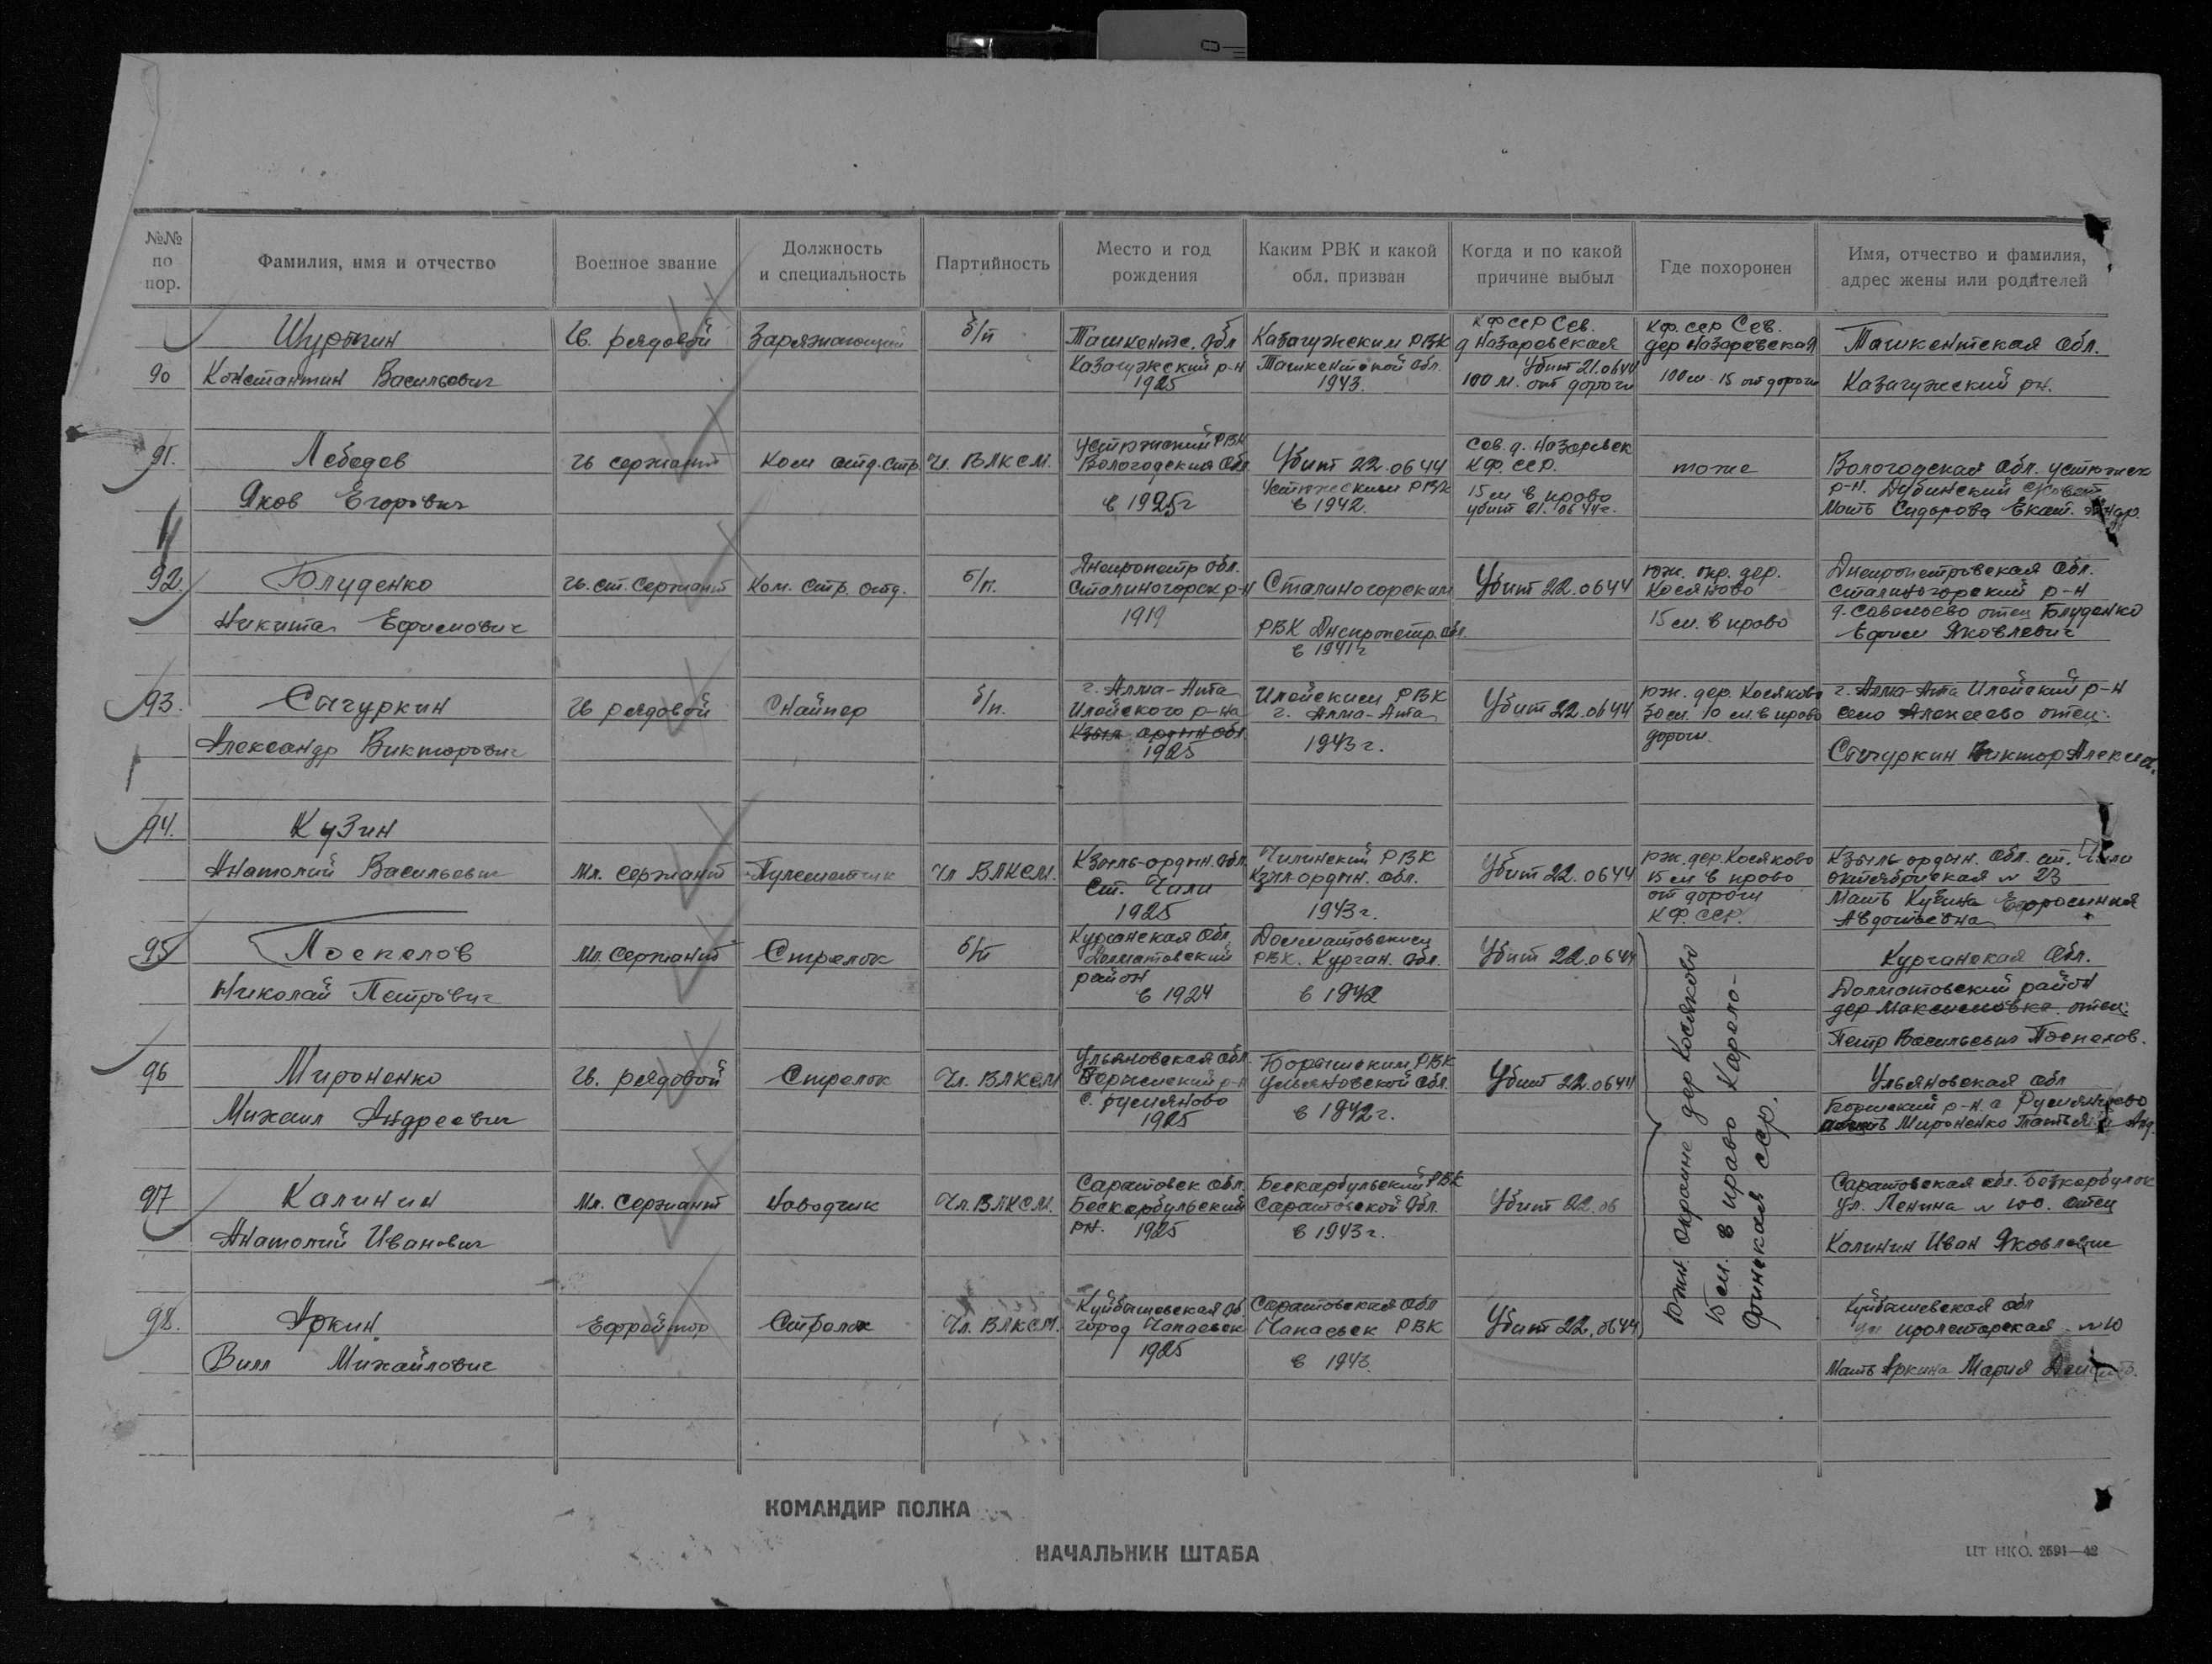 №№ по пор.
Фамилия, имя и отчество
Военное звание
Должность и специальность
Партийность
Место и год рождения
Каким РВК и какой обл. призван
Когда и по какой причине выбыл
Где похоронен
Имя, отчество и фамилия, адрес жены или родителей
90
Константин Васильевич
Гв. рядовой
Заряжающий
б/п
Ташкентс. обл
Казагужский р-н
1925
Казагужским РВК
Ташкентской обл.
1943.
КФССР Сев.
д Назаровская
Убит 21.0644
100 м. от дороги
КФ. ССР Сев.
дер Назаровская
100 м. 15 от дороги
Ташкентская обл.
Казагужский рн.
91.
Лебедев
Яков Егорович
Гв сержант
Ком отд. стр.
Чл. ВЛКСМ.
Устюжский РВК
Вологодская обл
в 1925г
Убит 22.0644
Устюжским РВК
в 1942.
Сев. д. Назаровск
КФ. ССР.
15 м. в право
убит 21.0644г.
тоже
Вологодская обл. Устюжск
р-н. Дубинский совет
Мать Сидорова Екат.
92.
Никита Ефимович
Гв. ст. сержант
Ком. стр. отд.
б/п.
Днепропетр обл.
Сталиногорск р-н
1919
Сталиногорским
РВК Днепропетр. обл.
в 1941г
Убит 22.0644
Юж. окр. дер.
Косяково
15 м. в право
Днепропетровская обл.
Сталиногорский р-н
д. Савельево отец Блуденко
Ефим Яковлевич
93.
Сычуркин
Александр Викторович
Гв рядовой
Снайпер
б/п.
г. Алма-Ата
Илейского р-на
Кзыл ордын обл
1925
Илейским РВК
г. Алма-Ата
1943 г.
Убит 22.0644
Юж. дер. Косяково
30 м. 10 м. в право
дороги
г. Алма-Ата Илейский р-н
село Алексеево отец.
Сычуркин Виктор Алексеев.
94.
Кузин
Анатолий Васильевич
Мл. сержант
Пулеметчик
Чл ВЛКСМ.
Кзыль-ордын. обл.
ст. Чили
1925
Чилинский РВК
Кзыл ордын. обл.
1943 г.
Убит 22.0644
Юж. дер. Косяково
15 м в право
от дороги
КФ. ССР.
Кзыль ордын. обл. ст. Чили
октябрьская № 23
Мать Кузина Ефросинния
Авдотьевна
95
Поспелов
Николай Петрович
Мл. Сержант
Стрелок
б/п
Курганская обл
Долматовский
район
в 1924
Долматовским
РВК. Курган. обл.
в 1942
Убит 22.0644
Южн. окраине дер Косяково
15 м. в право Карело-
Финская ССР.
Курганская обл.
Долматовский район
дер Максимовка. отец:
Петр Васильевич Поспелов.
96
Мироненко
Михаил Андреевич
Гв. рядовой
Стрелок
Чл. ВЛКСМ
Ульяновская обл.
с. Румяново
1925
Борышским РВК
Ульяновской обл.
в 1942 г.
Убит 22.0644
Ульяновская обл
Мироненко Татьяна Анд.
97
Калинин
Анатолий Иванович
Мл. сержант
Наводчик
Чл. ВЛКСМ.
Саратовск обл.
Бескарбульский
рн. 1925
Бескарбульский РВК
Саратовской обл.
в 1943 г.
Убит 22.06
Саратовская обл. Безкарбулок
ул. Ленина № 100. отец
Калинин Иван Яковлевич
98.
Аркин
Вилл Михайлович
Ефрейтор
Стрелок
Чл. ВЛКСМ.
Куйбышевская об
город Чапаевск
1925
Саратовская обл
Чапаевск РВК
в 1943.
Убит 22.0644
Куйбышевская обл
ул пролетарская № 10
Мать Аркина Мария
КОМАНДИР ПОЛКА
НАЧАЛЬНИК ШТАБА
ЦТ НКО. 2591—42